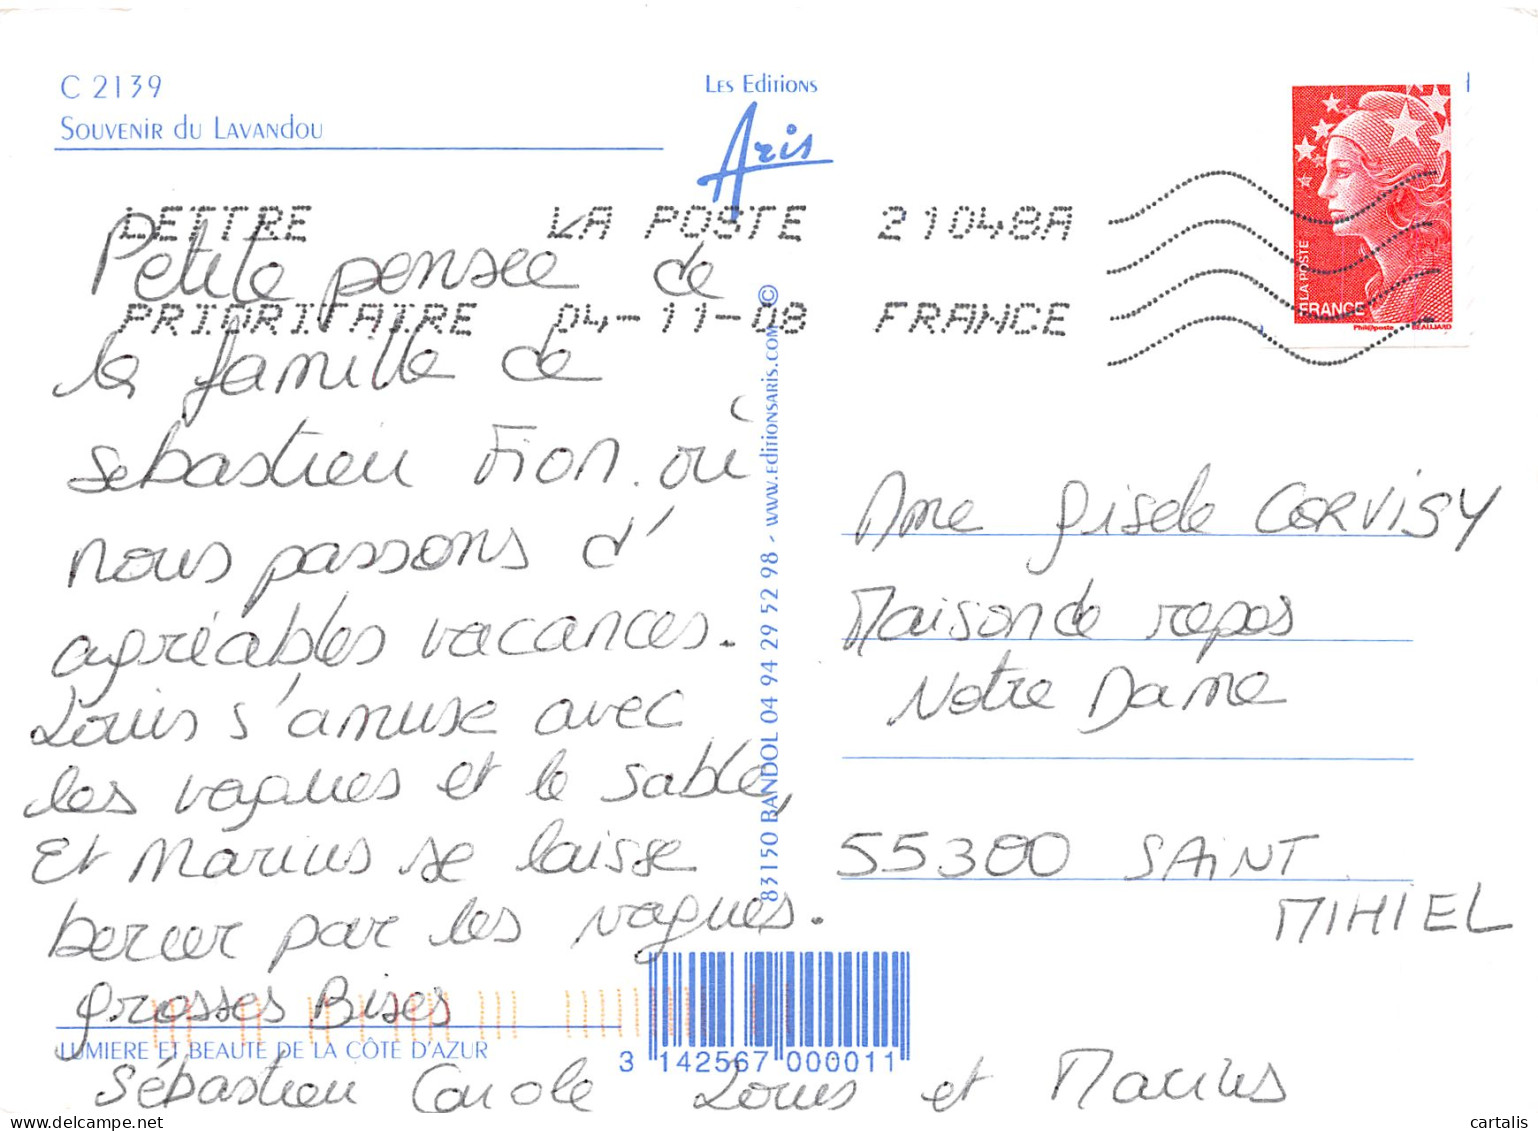 C 2139
Souvenir du Lavandou
Les Editions
Aris
LETTRE LA POSTE 21048A
PRIORITAIRE 04-11-08 FRANCE
LA POSTE
FRANCE
Phil@poste BEAUJARD
Petite pensée de
la famille de
Sebastien Fion. où
nous passons d'
agréables vacances.
Louis s'amuse avec
les vagues et le sable,
Et Marius se laisse
bercer par les vagues.
grosses Bises
Sébastien Carole Louis et Marius
83150 BANDOL 04 94 29 52 98 - www.editionsaris.com ©
Mme Gisele CORVISY
Maison de repos
Notre Dame
55300 SAINT
MIHIEL
LUMIERE ET BEAUTE DE LA CÔTE D'AZUR
3 142567 000011
cartalis